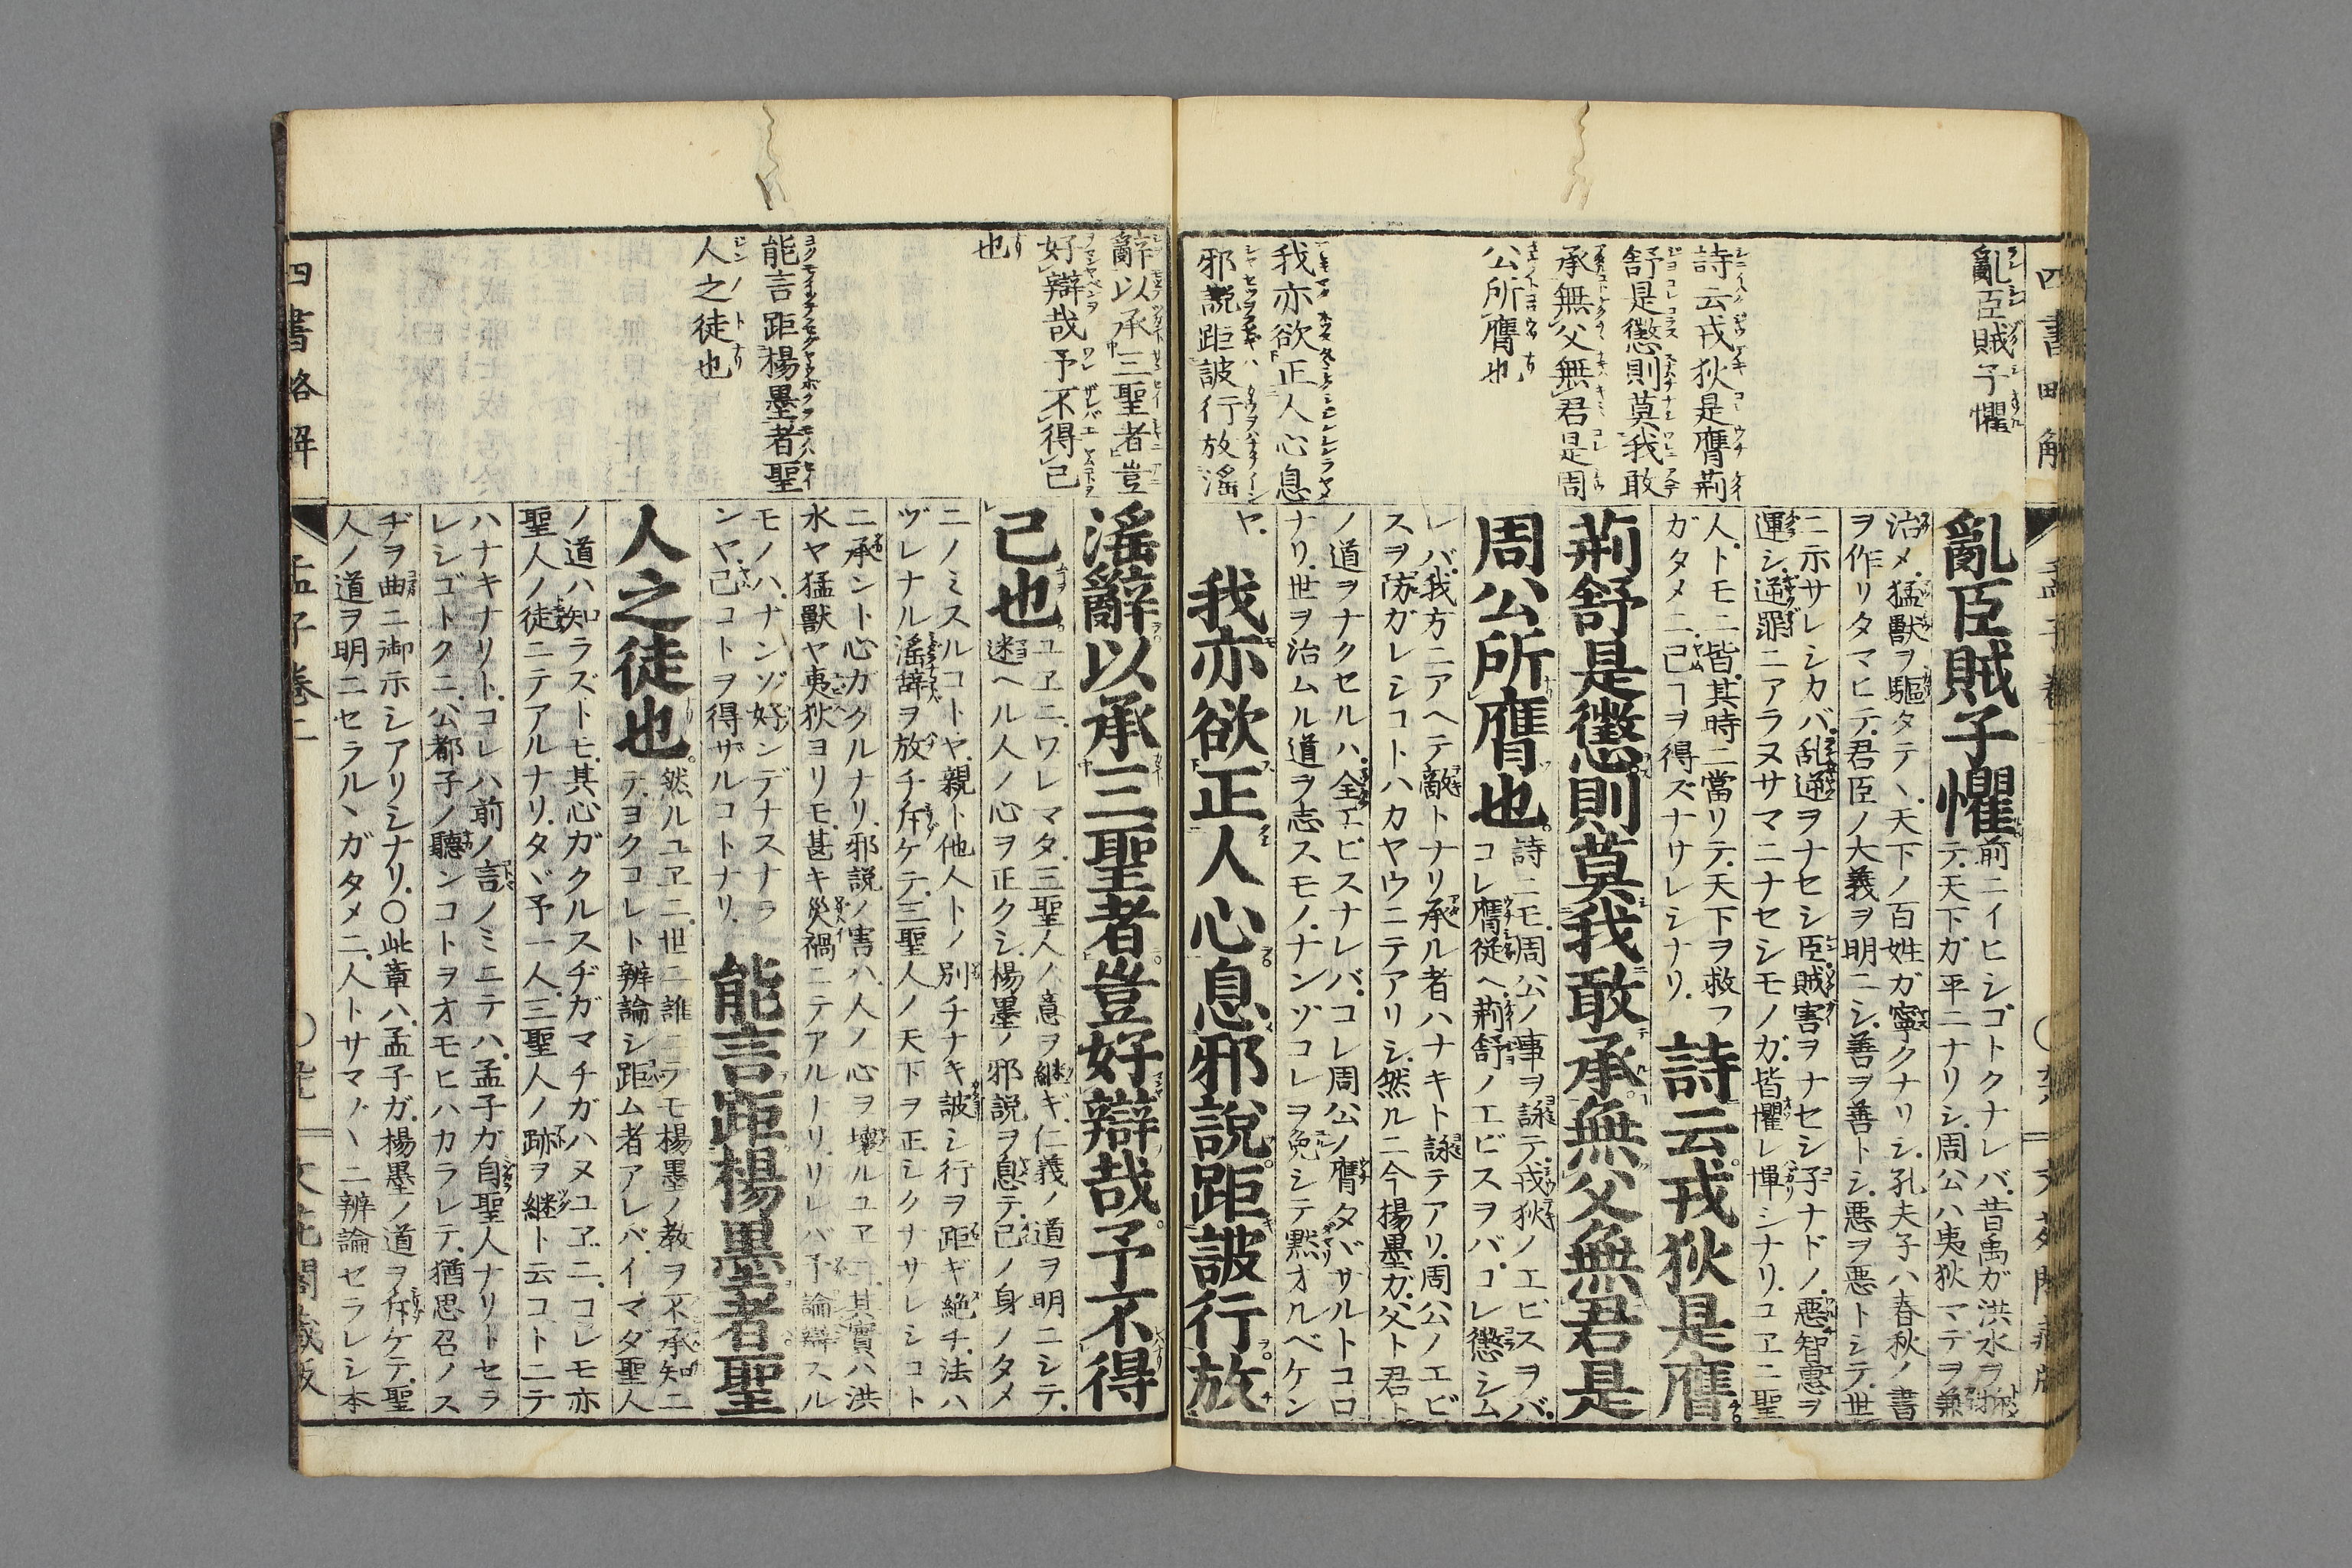 四書略解
孟子卷二
亂臣賊子懼
詩云戎狄是膺荊
舒是懲則莫我敢
承無父無君是周
公所膺也
我亦欲正人心息
邪説距詖行放淫
亂臣賊子懼前ニイヒシゴトクナレバ昔禹ガ洪水ヲ抑
テ天下ガ平ニナリシ周公ハ夷狄マデヲ兼
治メ猛獸ヲ驅タテヽ天下ノ百姓ガ寧クナリシ孔夫子ハ春秋ノ書
ヲ作リタマヒテ君臣ノ大義ヲ明ニシ善ヲ善トシ悪ヲ悪トシテ世
ニ示サレシカバ乱逆ヲナセシ臣賊害ヲナセシ子ナドノ悪智惠ヲ
運シ逆罪ニアラヌサマニナセシモノガ皆懼レ憚シナリコヱニ聖
人トモニ皆其時ニ當リテ天下ヲ救フ
ガタメニ已ヿヲ得ズナサレシナリ
詩云戎狄是膺
荊舒是懲則莫我敢承無父無君是
周公所膺也詩ニモ周公ノ事ヲ詠テ戎狄ノエビスヲバ
コレ膺従ヘ荊舒ノエビスヲバコレ懲シム
レバ我方ニアヘテ敵トナリ承ル者ハナキト詠テアリ周公ノエビ
スヲ防ガレシコトハカヤウニテアリシ然ルニ今揚墨ガ父ト君ト
ノ道ヲナクセルハ全エビスナレバコレ周公ノ膺タヾサルトコロ
ナリ世ヲ治ムル道ヲ志スモノナンゾコレヲ免シテ黙オルベケン
ヤ
我亦欲正人心息邪説距詖行放
辭以承三聖者豈
好辯哉予不得已
也
能言距楊墨者聖
人之徒也
淫辭以承三聖者豈好辯哉予不得
已也ユヱニワレマタ三聖人ノ意ヲ継ギ仁義ノ道ヲ明ニシテ
迷ヘル人ノ心ヲ正クシ楊墨ノ邪説ヲ息テ己ノ身ノタメ
ニノミスルコトヤ親ト他人トノ別チナキ詖シ行ヲ距ギ絶チ法ハ
ヅレナル淫辞ヲ放チ斥ケテ三聖人ノ天下ヲ正シクナサレシコト
ニ承ント心ガクルナリ邪説ノ害ハ人ノ心ヲ壊ルユヱニ其實ハ洪
水ヤ猛獸ヤ夷狄ヨリモ甚キ災禍ニテアルナリサレバ予論辯スル
モノハナンゾ好ンデナスナラ
ンヤ已コトヲ得ザルコトナリ
能言距楊墨者聖
人之徒也然ルユヱニ世ニ誰ニテモ楊墨ノ教ヲ不承知ニ
テヨクコレト辨論シ距ム者アレバイマダ聖人
ノ道ハ知ラズトモ其心ガクルスヂガマチガハヌユヱニコレモ亦
聖人ノ徒ニテアルナリタヾ予一人三聖人ノ跡ヲ継ト云コトニテ
ハナキナリトコレハ前ノ言ノミニテハ孟子ガ自聖人ナリトセラ
レシゴトクニ公都子ノ聽ンコトヲオモヒハカラレテ猶思召ノス
ヂヲ曲ニ御示シアリシナリ〇此章ハ孟子ガ楊墨ノ道ヲ斥ケテ聖
人ノ道ヲ明ニセラルヽガタメニ人トサマ〲ニ辨論セラレシ本
四書略解
孟子卷二
文苑閣藏版